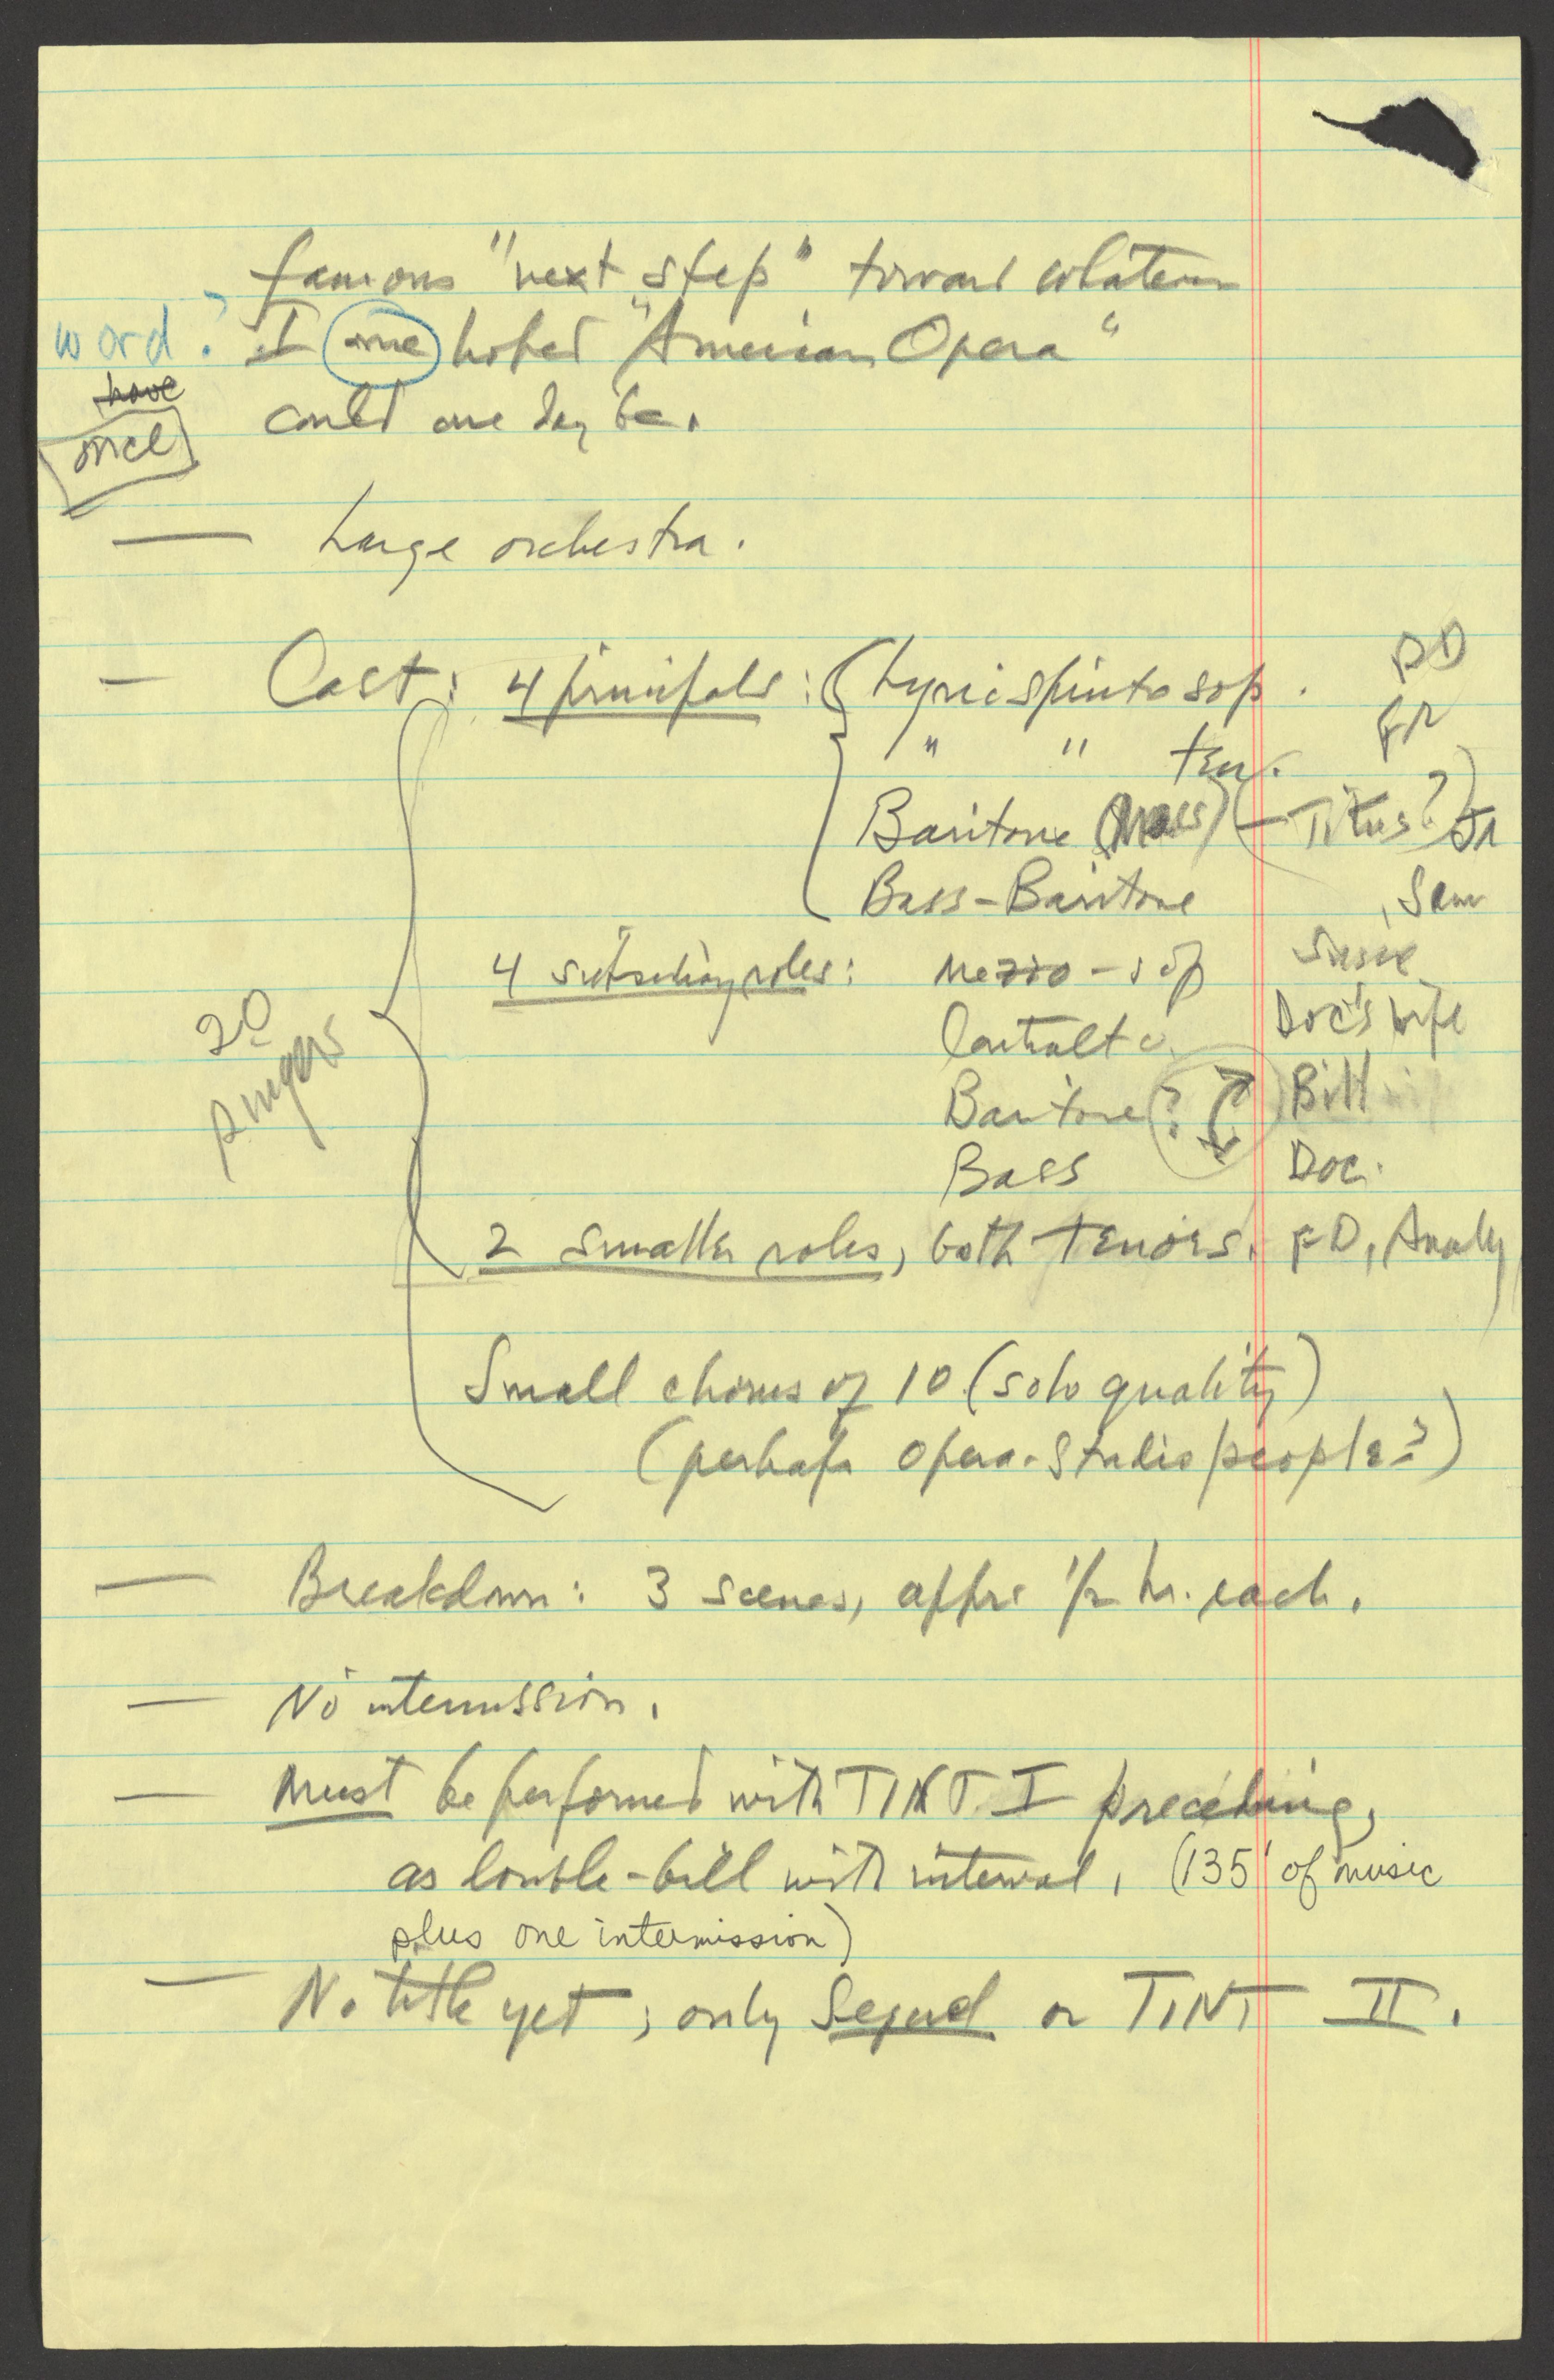 famous "next step" toward whatever
word? I once hoped "American Opera"
have
once
could one day be.
— Large orchestra.
— Cast: 4 principals: Lyric spinto sop. DD
" " ten. FR
Baritone (— Titus?) Jr
Bass-Baritone, Sam
4 subsidiary roles: Mezzo-sop Susie
Contralto Doc's wife
Baritone ? Bill
Bass Doc.
20
singers
2 smaller roles, both tenors. FD, Analy
Small chorus of 10 (solo quality)
(perhaps Opera-Studio people?)
— Breakdown: 3 scenes, appr. 1/2 hr. each.
— No intermission.
— Must be performed with TINT I preceding,
as double-bill with interval, (135' of music
plus one intermission)
— No title yet; only Sequel or TINT II.